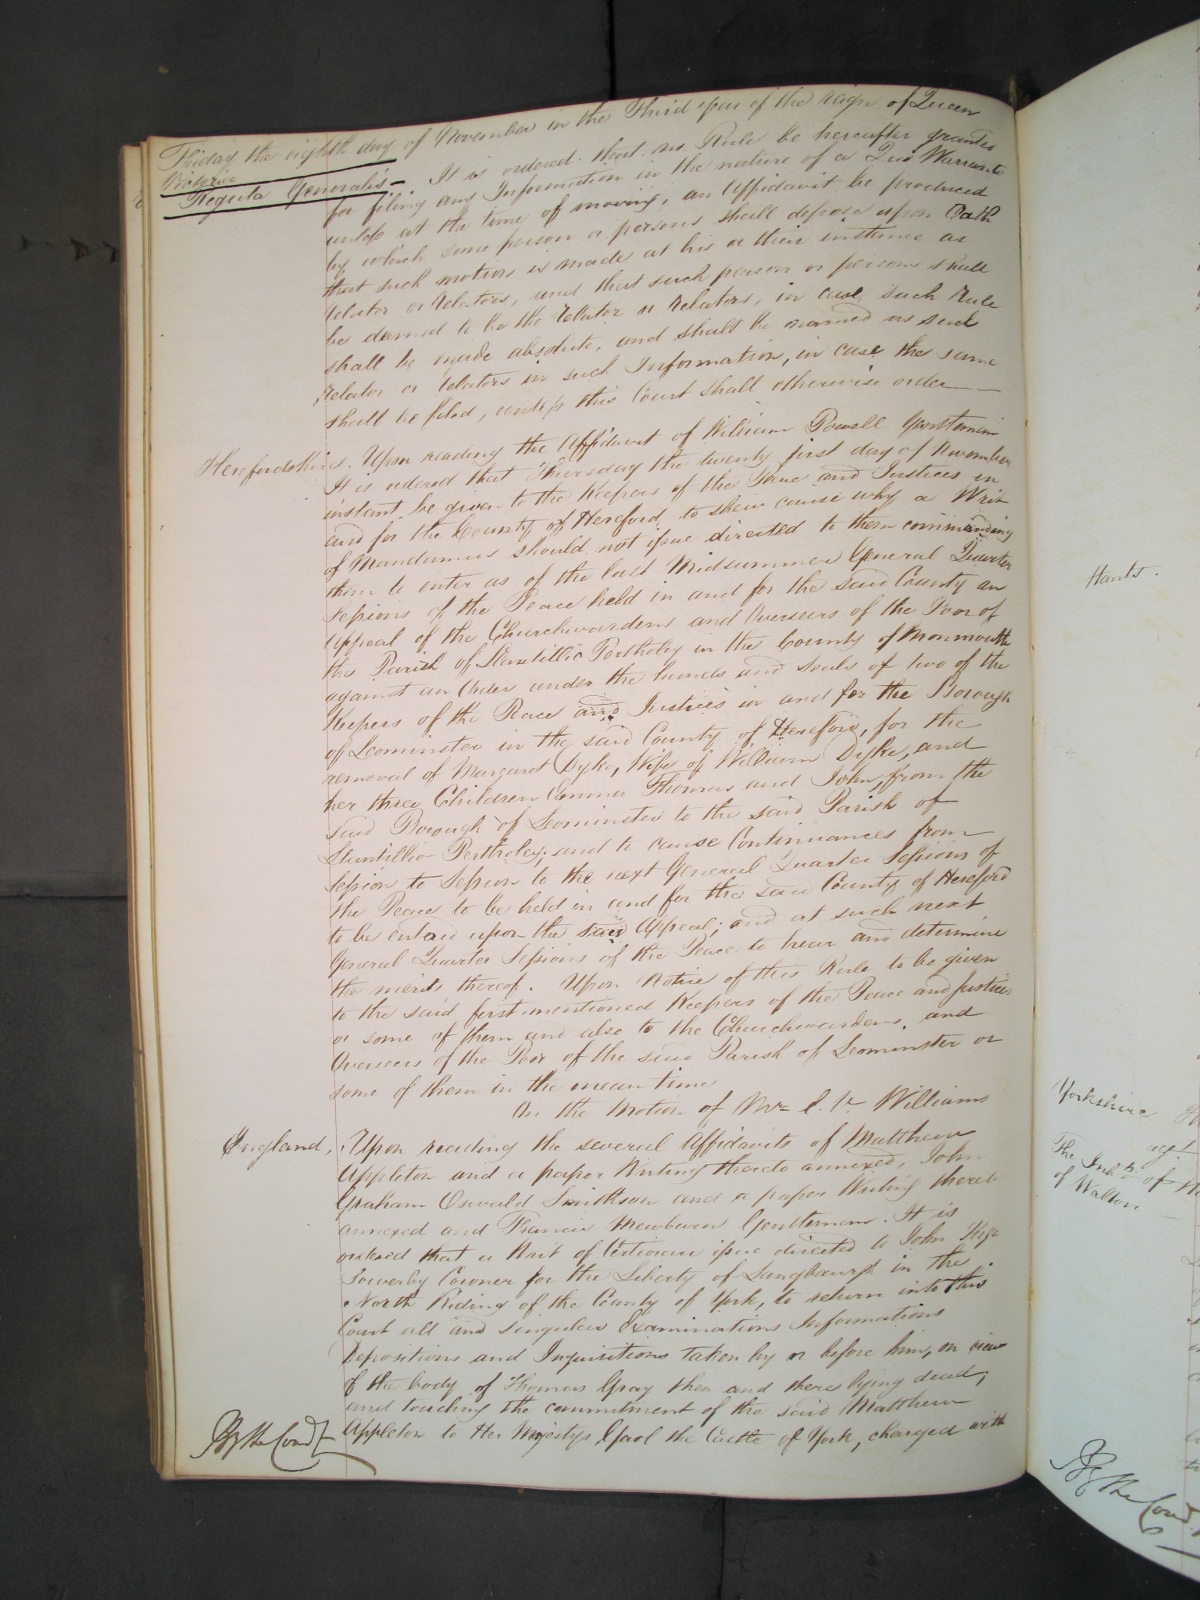 Friday the eighth day of November in the Third year of the reign of Queen
Victoria
Regula Generalis — It is ordered that no Rule be hereafter granted
for filing any Information in the nature of a Quo Warranto
unless at the time of moving, an Affidavit be produced
by which some person or persons shall depose upon Oath
that such motion is made at his or their instance as
relator or relators, and that such person or persons shall
be deemed to be the relator or Relators, in case such Rule
shall be made absolute, and shall be named as such
relator or relators in such Information, in case the same
shall be filed, unless this Court shall otherwise order
Herefordshire. Upon reading the Affidavit of William Powell Gentleman
It is ordered that Thursday the twenty first day of November
instant be given to the Keepers of the Peace and Justices in
and for the County of Hereford to shew cause why a Writ
of Mandamus should not issue directed to them commanding
them to enter as of the last Midsummer General Quarter
Sessions of the Peace held in and for the said County an
Appeal of the Churchwardens and Overseers of the Poor of
the Parish of Llantillio Pertholey in the County of Monmouth
against an Order under the hands and seals of two of the
Keepers of the Peace and Justices in and for the Borough
of Leominster in the said County of Hereford, for the
removal of Margaret Dyke, Wife of William Dyke, and
her three Children Emma Thomas and John, from the
said Borough of Leominster to the said Parish of
Llantillio Pertholey, and to cause Continuances from
Session to Session to the next General Quarter Sessions of
the Peace to be held in and for the said County of Hereford
to be entered upon the said Appeal; and at such next
General Quarter Sessions of the Peace to hear and determine
the merits thereof. Upon Notice of this Rule to be given
to the said first mentioned Keepers of the Peace and Justices
or some of them and also to the Churchwardens and
Overseers of the Poor of the said Parish of Leominster or
some of them in the mean time
On the Motion of Mr E. V. Williams
England, Upon reading the several Affidavits of Matthew
Appleton and a paper Writing thereto annexed, John
Graham Oswald Smithson and a paper Writing thereto
annexed and Francis Mewburn Gentlemen. It is
ordered that a Writ of Certiorari issue directed to John
Sowerby Coroner for the Liberty of Langbaurgh in the
North Riding of the County of York, to return into this
Court all and singular Examinations Informations
Depositions and Inquisitions taken by or before him, on view
of the body of Thomas Gray then and there lying dead,
and touching the commitment of the said Matthew
Appleton to Her Majestys Gaol the Castle of York, charged with
By the Court
Hants.
Yorkshire
agt
The Inhts of
of Walton
By the Court